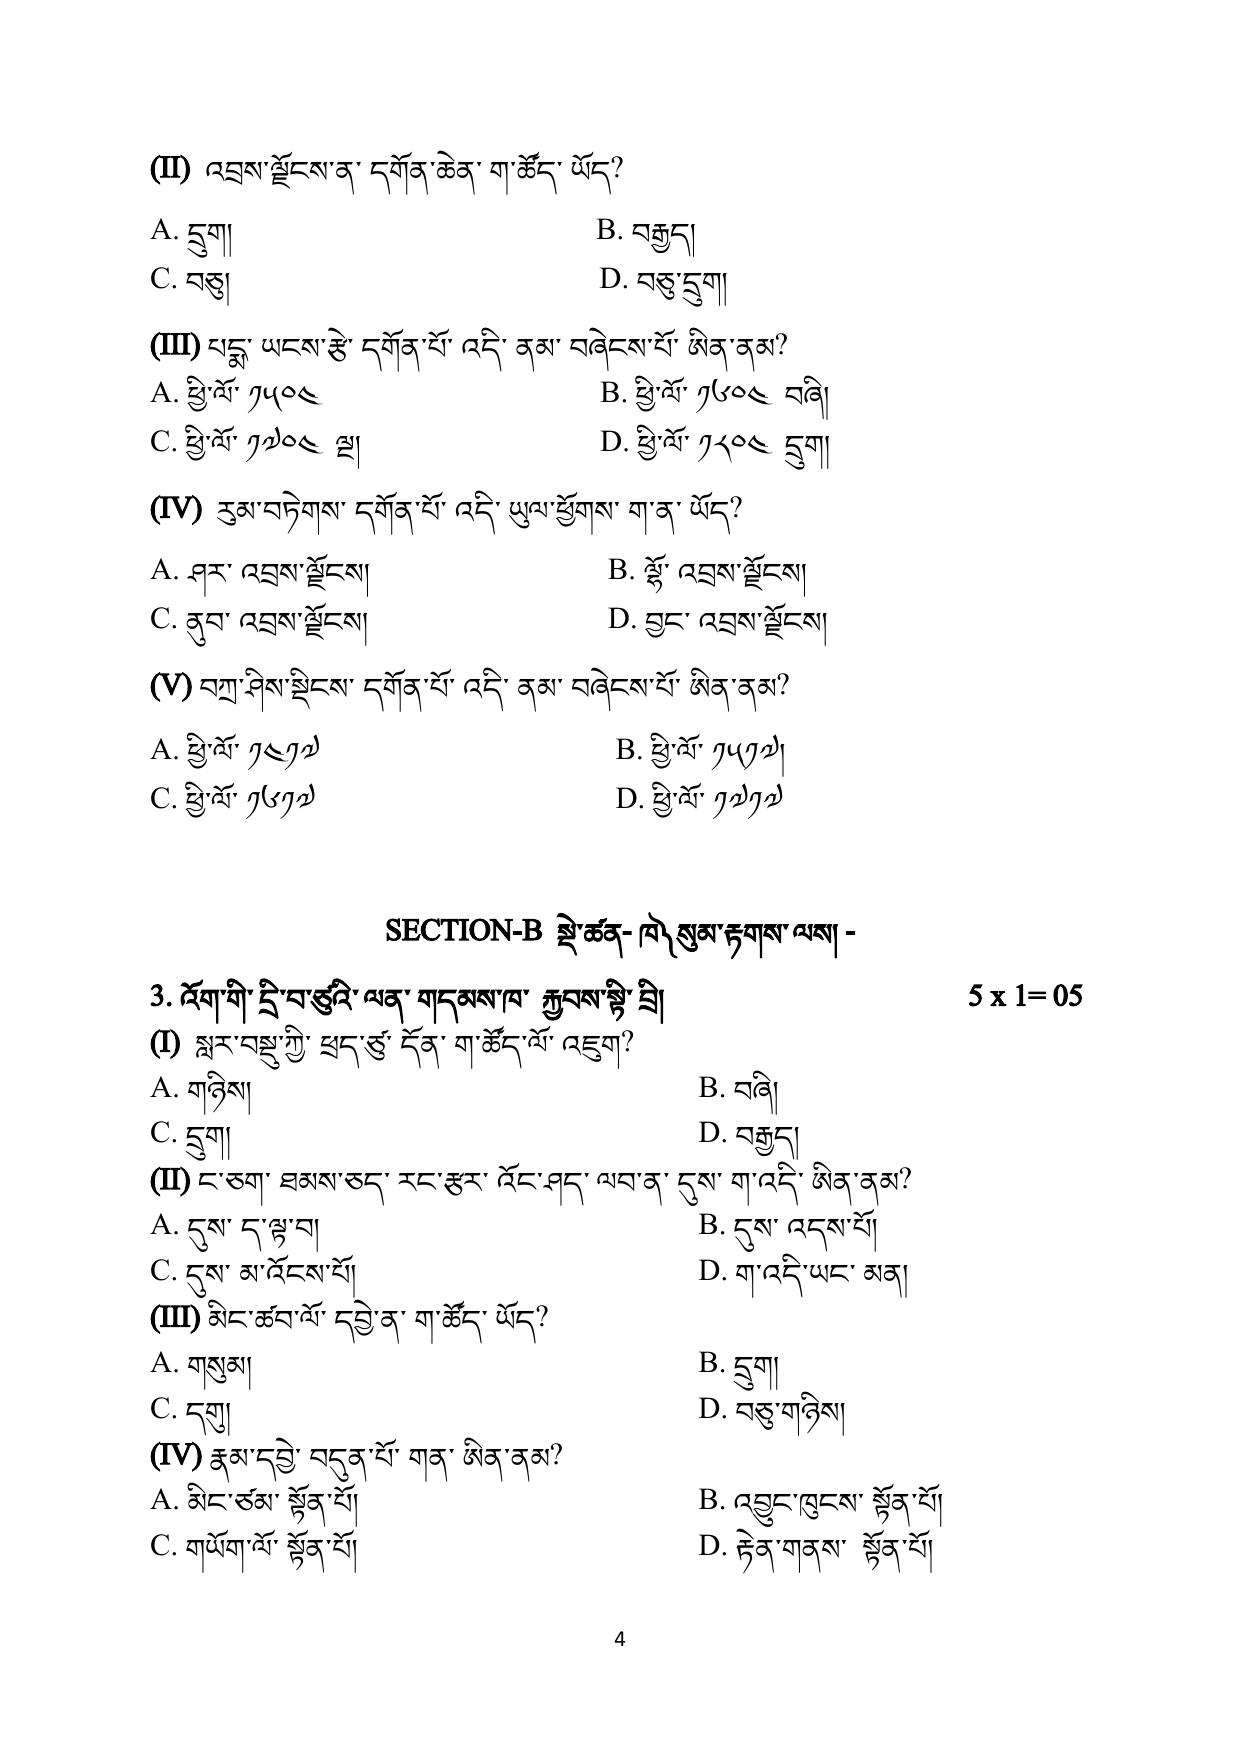 (II) འབྲས་ལྗོངས་ན་ དགོན་ཆེན་ ག་ཚོད་ ཡོད?
A. དྲུག། B. བརྒྱད།
C. བཅུ། D. བཅུ་དྲུག།
(III) པདྨ་ ཡངས་རྩེ་ དགོན་པོ་ འདི་ ནམ་ བཞེངས་པོ་ ཨིན་ནམ?
A. ཕྱི་ལོ་ ༡༥༠༤ B. ཕྱི་ལོ་ ༡༦༠༤ བཞི།
C. ཕྱི་ལོ་ ༡༧༠༤ ལྔ། D. ཕྱི་ལོ་ ༡༨༠༤ དྲུག།
(IV) རུམ་བཏེགས་ དགོན་པོ་ འདི་ ཡུལ་ཕྱོགས་ ག་ན་ ཡོད?
A. ཤར་ འབྲས་ལྗོངས། B. ལྷོ་ འབྲས་ལྗོངས།
C. ནུབ་ འབྲས་ལྗོངས། D. བྱང་ འབྲས་ལྗོངས།
(V) བཀྲ་ཤིས་སྡིངས་ དགོན་པོ་ འདི་ ནམ་ བཞེངས་པོ་ ཨིན་ནམ?
A. ཕྱི་ལོ་ ༡༤༡༧ B. ཕྱི་ལོ་ ༡༥༡༧།
C. ཕྱི་ལོ་ ༡༦༡༧ D. ཕྱི་ལོ་ ༡༧༡༧
SECTION-B སྡེ་ཚན- ཁ༽ སུམ་རྟགས་ལས། -
3. འོག་གི་ དྲི་བ་ཙུའི་ ལན་ གདམས་ཁ་ རྐྱབས་སྟི་ བྲི། 5 x 1= 05
(I) སླར་བསྡུ་ཀྱི་ ཕྲད་ཙུ་ དོན་ ག་ཚོད་ལོ་ འཇུག?
A. གཉིས། B. བཞི།
C. དྲུག། D. བརྒྱད།
(II) ང་ཅག་ ཐམས་ཅད་ རང་རྩར་ འོང་ཤད་ ལབ་ན་ དུས་ ག་འདི་ ཨིན་ནམ?
A. དུས་ ད་ལྟ་བ། B. དུས་ འདས་པོ།
C. དུས་ མ་འོངས་པོ། D. ག་འདི་ཡང་ མན།
(III) མིང་ཚབ་ལོ་ དབྱེ་ན་ ག་ཚོད་ ཡོད?
A. གསུམ། B. དྲུག།
C. དགུ། D. བཅུ་གཉིས།
(IV) རྣམ་དབྱེ་ བདུན་པོ་ གན་ ཨིན་ནམ?
A. མིང་ཙམ་ སྟོན་པོ། B. འབྱུང་ཁུངས་ སྟོན་པོ།
C. གཡོག་ལོ་ སྟོན་པོ། D. རྟེན་གནས་ སྟོན་པོ།
4